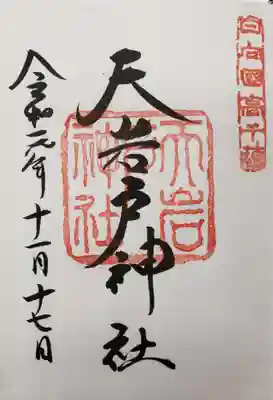 日向国高千穂
天岩戸神社
天岩
神社
令和元年十一月十七日